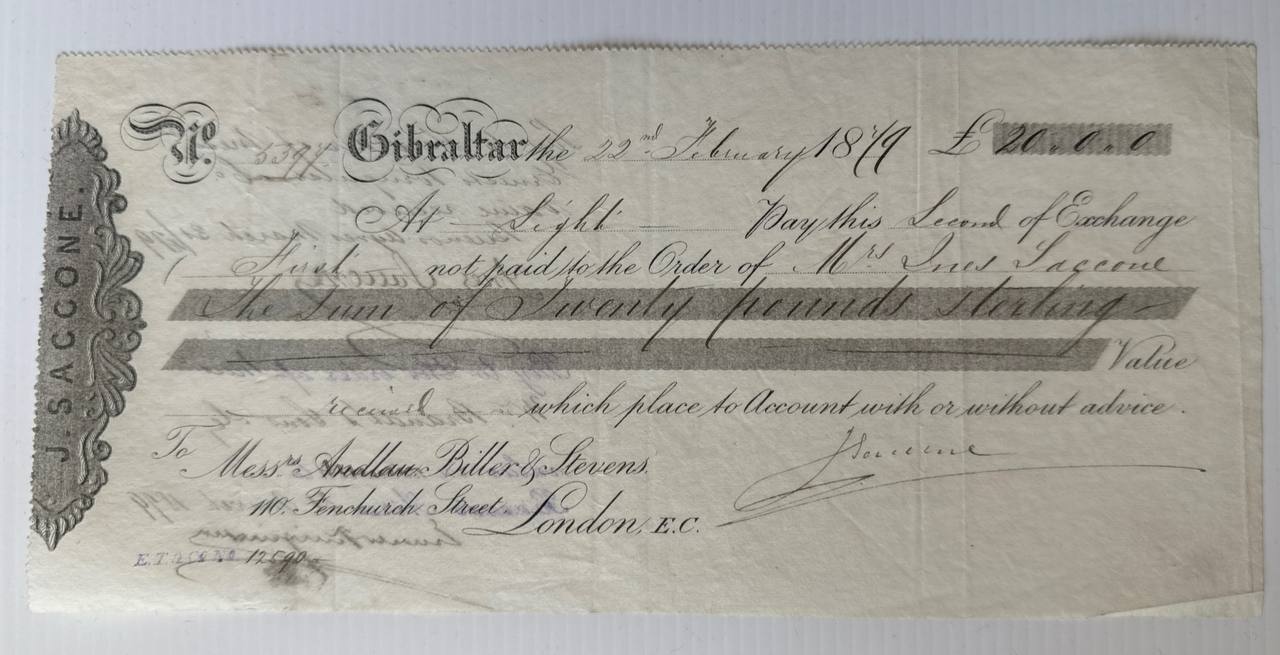 J. SACCONE.
No. 5397 Gibraltar the 22nd February 1879 £ 20 . 0 . 0
At Sight Pay this Second of Exchange
( First not paid to the Order of Mrs Ines Saccone
The Sum of Twenty pounds sterling
Value
received which place to Account with or without advice.
To Messrs Andlau Biller & Stevens JSaccone
110. Fenchurch Street London, E.C.
E.T. & Co No. 12590